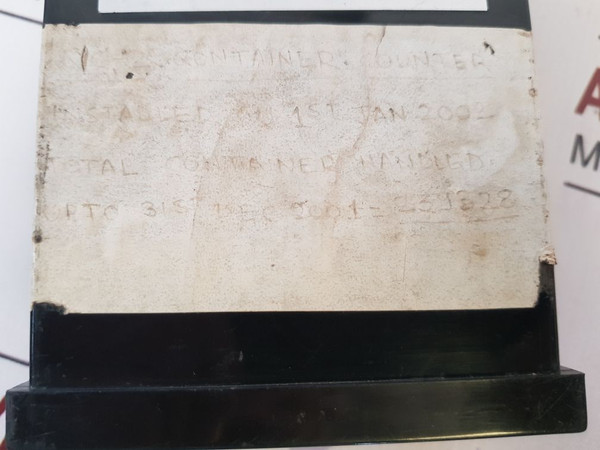 CONTAINER COUNTER
INSTALLED ON 1ST JAN 2002
TOTAL CONTAINER HANDLED.
UPTO 31ST DEC 2001 =
A
M